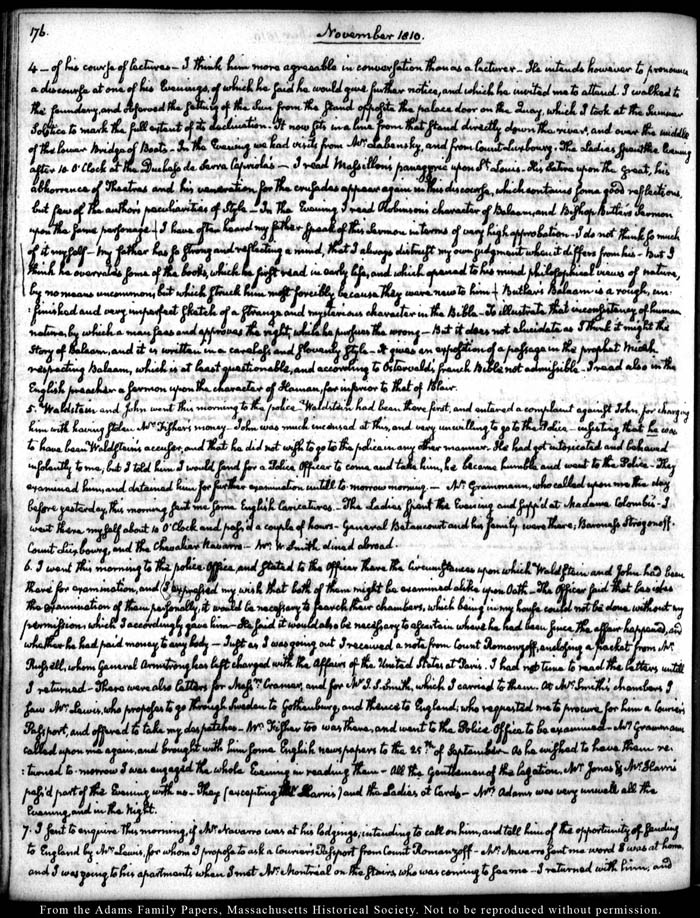 176.
November 1810.
4 — of his course of lectures — I think him more agreeable in conversation than as a lecturer — He intends however to pronounce
a discourse at one of his Evenings, of which he said he would give further notice, and which he invited me to attend. I walked to
the foundery, and observed the setting of the Sun from the stand opposite the palace door on the Quay, which I took at the Summer
Solstice to mark the full extent of its declination. It now sets in a line from that stand directly down the river, and over the middle
of the lower Bridge of Boats — In the Evening we had visits from Mr. Labensky, and from Count Luxbourg. The Ladies spent the Evening
after 10 O'Clock at the Duchess de Serra Capriola's — I read Massillon's panegyric upon St. Louis. His Satire upon the great, his
abhorrence of Theatres and his veneration for the crusades appear again in this discourse, which contains some good reflections,
but few of the author's peculiarities of Style — In the Evening I read Robinson's character of Balaam, and Bishop Butler's Sermon
upon the same personage. I have often heard my father speak of this Sermon in terms of very high approbation — I do not think so much
of it myself — My father has so strong and reflecting a mind, that I always distrust my own judgment when it differs from his — But I
think he overrates some of the books, which he first read in early life, and which opened to his mind philosophical views of nature,
by no means uncommon, but which struck him most forcibly because they were new to him. Butler's Balaam is a rough, un-
:finished and very imperfect sketch of a strange and mysterious character in the Bible — To illustrate that inconsistency of human
nature, by which a man sees and approves the right, while he pursues the wrong — But it does not elucidate as I think it might the
Story of Balaam, and it is written in a careless and slovenly style — It gives an exposition of a passage in the prophet Micah
respecting Balaam, which is at least questionable, and according to Ostervald's french Bible not admissible — I read also in the
English preacher a sermon upon the character of Haman, far inferior to that of Blair.
5. Waldstein and John went this morning to the police. Waldstein had been there first, and entered a complaint against John, for charging
him with having stolen Mr. Fisher's money — John was much incensed at this, and very unwilling to go to the Police — insisting that he was
to have been Waldstein's accuser, and that he did not wish to go to the police in any other manner. He had got intoxicated and behaved
insolently to me, but I told him I would send for a Police Officer to come and take him, he became humble and went to the Police — They
examined him, and detained him for further examination untill to-morrow morning. — Mr. Grammann, who called upon me the day
before yesterday, this morning sent me some English Caricatures — The Ladies spent the Evening and supp'd at Madame Colombi's — I
went there myself about 10 O'Clock and pass'd a couple of hours — General Betancourt and his family were there; Baroness Strogonoff.
Count Luxbourg, and the Chevalier Navarro — Mr. W Smith dined abroad.
6. I went this morning to the police Office, and stated to the Officer there the Circumstances upon which Waldstein and John had been
there for examination, and I expressed my wish that both of them might be examined alike upon Oath — The Officer said that besides
the examination of them personally, it would be necessary to search their chambers, which being in my house could not be done without my
permission, which I accordingly gave him — He said it would also be necessary to ascertain where he had been since the affair happened, and
whether he had paid money to any body — Just as I was going out I received a note from Count Romanzoff, enclosing a packet from Mr.
Russell, whom General Armstrong has left charged with the Affairs of the United States at Paris. I had not time to read the letters untill
I returned — There were also letters for Messrs. Cramer, and for Mr. J. S. Smith, which I carried to them. At Mr. Smith's chambers I
saw Mr. Lewis, who proposes to go through Sweden to Gothenburg, and thence to England; who requested me to procure for him a Courier's
Passport, and offered to take my despatches — Mr. Fisher too was there, and went to the Police Office to be examined — Mr. Grammann
called upon me again, and brought with him some English newspapers to the 25th. of September — As he wished to have them re-
:turned to-morrow I was engaged the whole Evening in reading them — All the Gentlemen of the legation, Mr. Jones & Mr. Harris
pass'd part of the Evening with us — They (excepting Harris) and the Ladies at Cards — Mrs. Adams was very unwell all the
Evening, and in the Night.
7. I sent to enquire this morning, if Mr. Navarro was at his lodgings, intending to call on him, and tell him of the opportunity of sending
to England by Mr. Lewis, for whom I propose to ask a Courier's Passport from Count Romanzoff — Mr. Navarro sent me word he was at home,
and I was going to his apartments when I met Mr. Montréal on the stairs, who was coming to see me — I returned with him, and
From the Adams Family Papers, Massachusetts Historical Society. Not to be reproduced without permission.